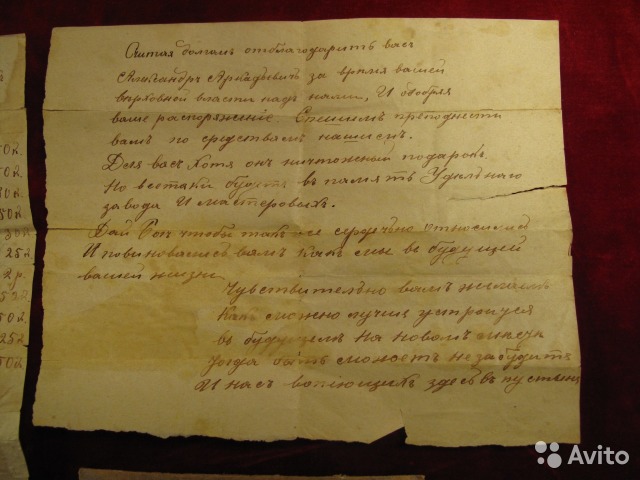 Считая долгомъ отблагодарить васъ
Александръ Аркадьевичъ за время вашей
верховной власти надъ нами, И одобряя
ваше распоряжение Спешимъ преподнести
вамъ по средствамъ нашимъ.
Для васъ Хотя онъ ничтожный подарокъ
Но всетаки будитъ въ память Удельнаго
завода И мастеровыхъ.
Дай Богъ чтобы такъ же сердечно относились
И повиновались вамъ какъ мы въ будущей
вашей жизни
Чувствительно вамъ желаемъ
Какъ можно лучше устроиця
въ будущемъ на новомъ месте
Тогда быть может не забудите
И насъ вопиющихъ здесь въ пустыне
50к
25к
2р.
50к
25к
50к
Avito